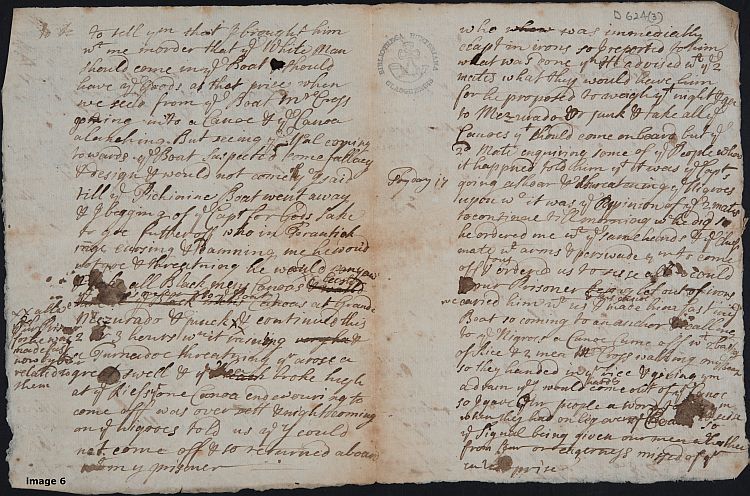 to tell ym that I brought him
wt me morder that ye White Man
should come in ye Boat & should
have ye Goods at that price when
we seed from ye Boat Mr Cross
going into a Canoe & ye Canoa
alanching. But seeing ye coming
towards ye Boat suspected some fallacy
& design & would not come ye said
till ye Pichinine Boat went away
& I begging of ye Capt for Gods Sake
to goe further off who in Forantick
rage cursing & Damning me he would
not goe & threatning he would
all Black men Canoas &
Canoas at Grande
Mezurado & Junck & continued this
2 or 3 hours wn it raining &
a Turnadoe threatning ye arose a
great swell & ye broke high
at ye first one Canoa endeavouring to
come off was over sett & night coming
on ye Nigroes told us yt ye could
not come off & so returned aboard
wt my prisner
for he was
made fast
now by
related to
them
Image 6
D 624(3)
BIBLIOTHECA HUNTERIANA
GLASGUENSIS
Fryday 17
who was immediatly
clapt in irons so I reported to him
what was done yn He advised wt ye 2
mates what they would have him
for he proposed to weigh yt night & goe
to Mezurado or Junk & take all ye
Canoes yt should come on board but ye
2d Mate enquiring some of ye People whow
it happned told him yt it was ye Capt
going ashoar & threatning ye Nigroes
upon wch it was ye Oppinion of ye 2 mates
to continue till morning wch he did so
he ordered me wt ye same hands & ye Chief
mate wt arms & perswade ym to come
off & ordered us to seise all we could
our Prisoner let out of irons
we carried him wt us & made him fast in ye
Boat so coming to an anchor & calling
to ye Nigroes a Canoe Came off w
of Rice & 2 men Mr Cross walking on ye
so they handed in ye rice & giving ym
a dram ye would come out of ye Canoe
so I gave ym people a word
when they had one leg over ye Boat
ye Signal being given our men altogether
from fear or eagerness missed of yr
prise